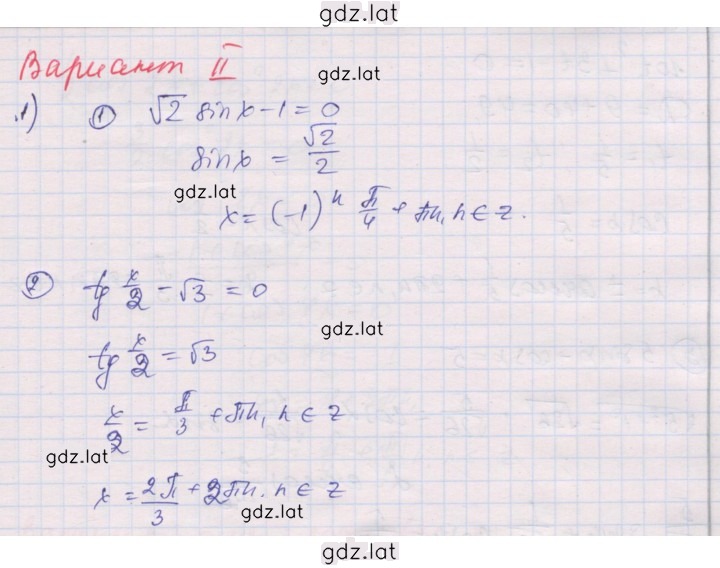 gdz.lat
Вариант II
gdz.lat
1) ① √2 sinx - 1 = 0
sinx = √2/2
gdz.lat
x = (-1)ⁿ π/4 + πn, n ∈ z.
② tg x/2 - √3 = 0
gdz.lat
tg x/2 = √3
x/2 = π/3 + πn, n ∈ z
gdz.lat
x = 2π/3 + 2πn. n ∈ z
gdz.lat
gdz.lat